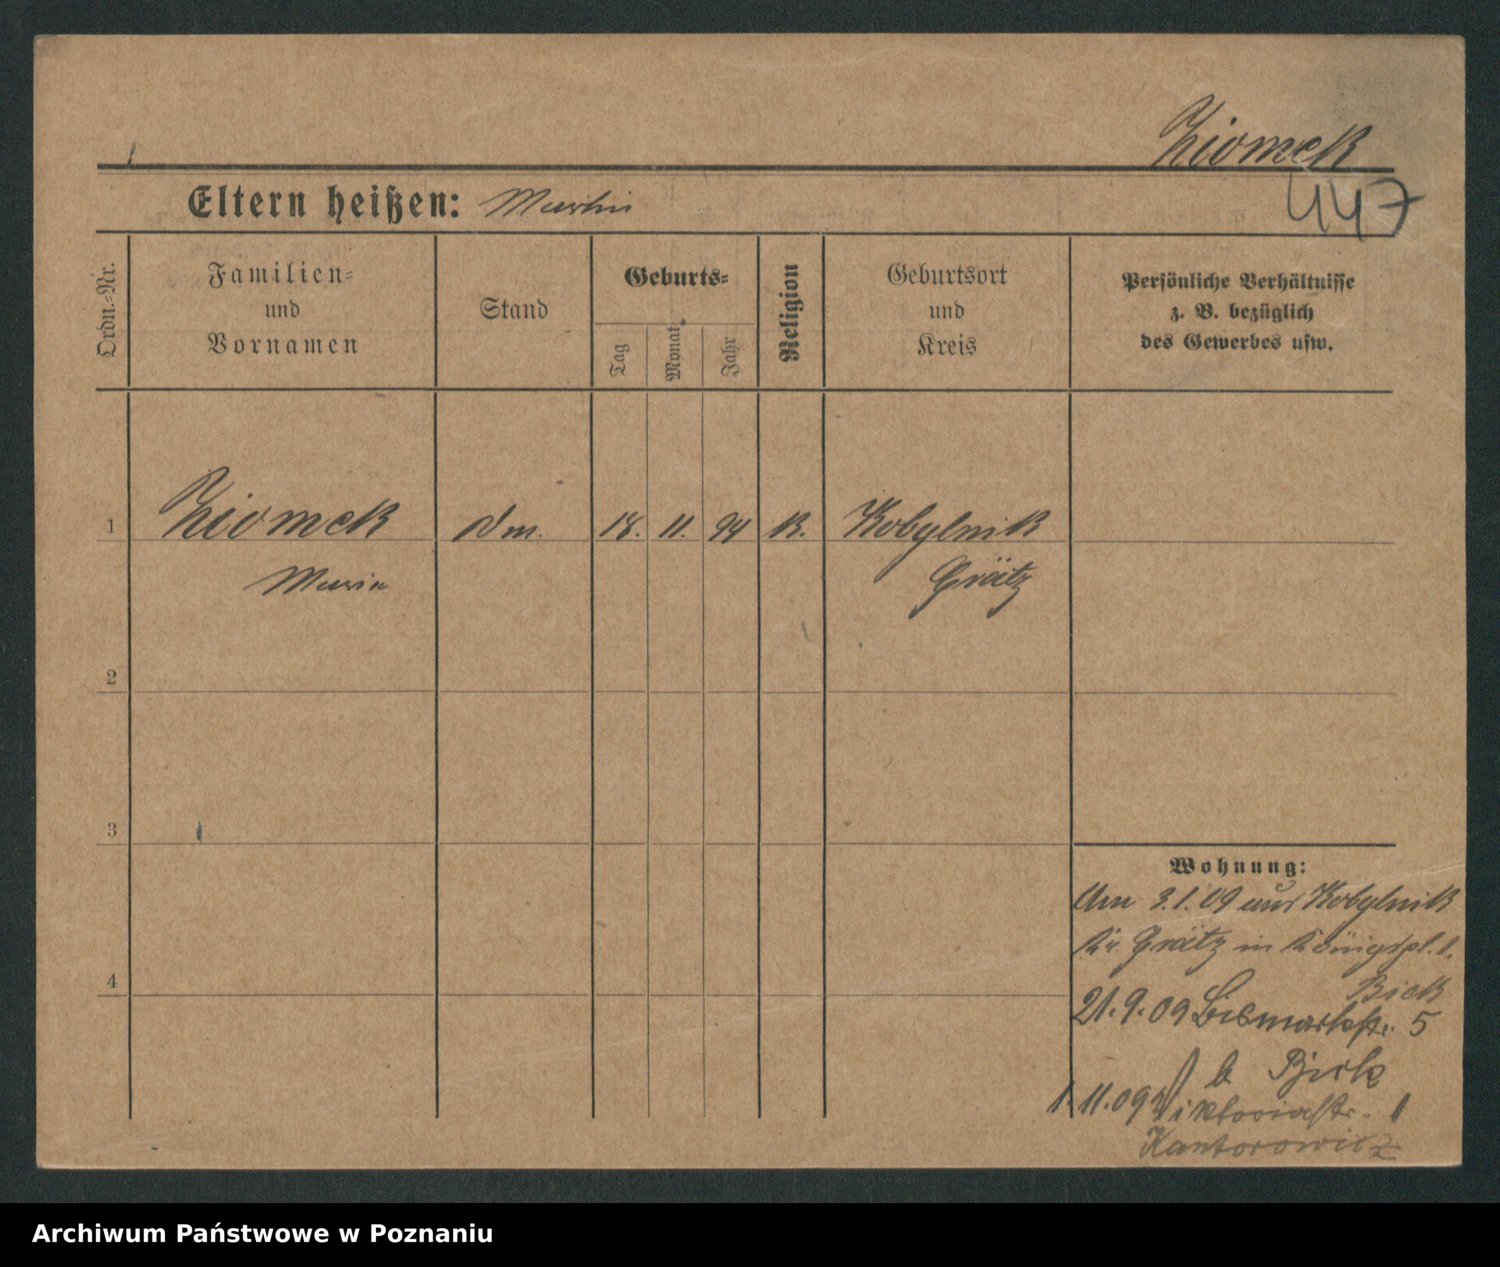 Ziomek
Eltern heißen: Martin
447
Ordn.=Nr.
Familien=
und
Vornamen
Stand
Geburts=
Tag
Monat
Jahr
Religion
Geburtsort
und
Kreis
Persönliche Verhältnisse
z. B. bezüglich
des Gewerbes usw.
1 Ziomek Dm. 18. 11. 94 K. Kobylnik
Maria Grätz
2
3
4
Wohnung:
Am 3.1.09 aus Kobylnik
Kr. Grätz in Königspl. 1.
Bick
21.9.09 Bismarkstr. 5
b Bick
1.11.09 Viktoriastr. 1
Kantorowicz
Archiwum Państwowe w Poznaniu